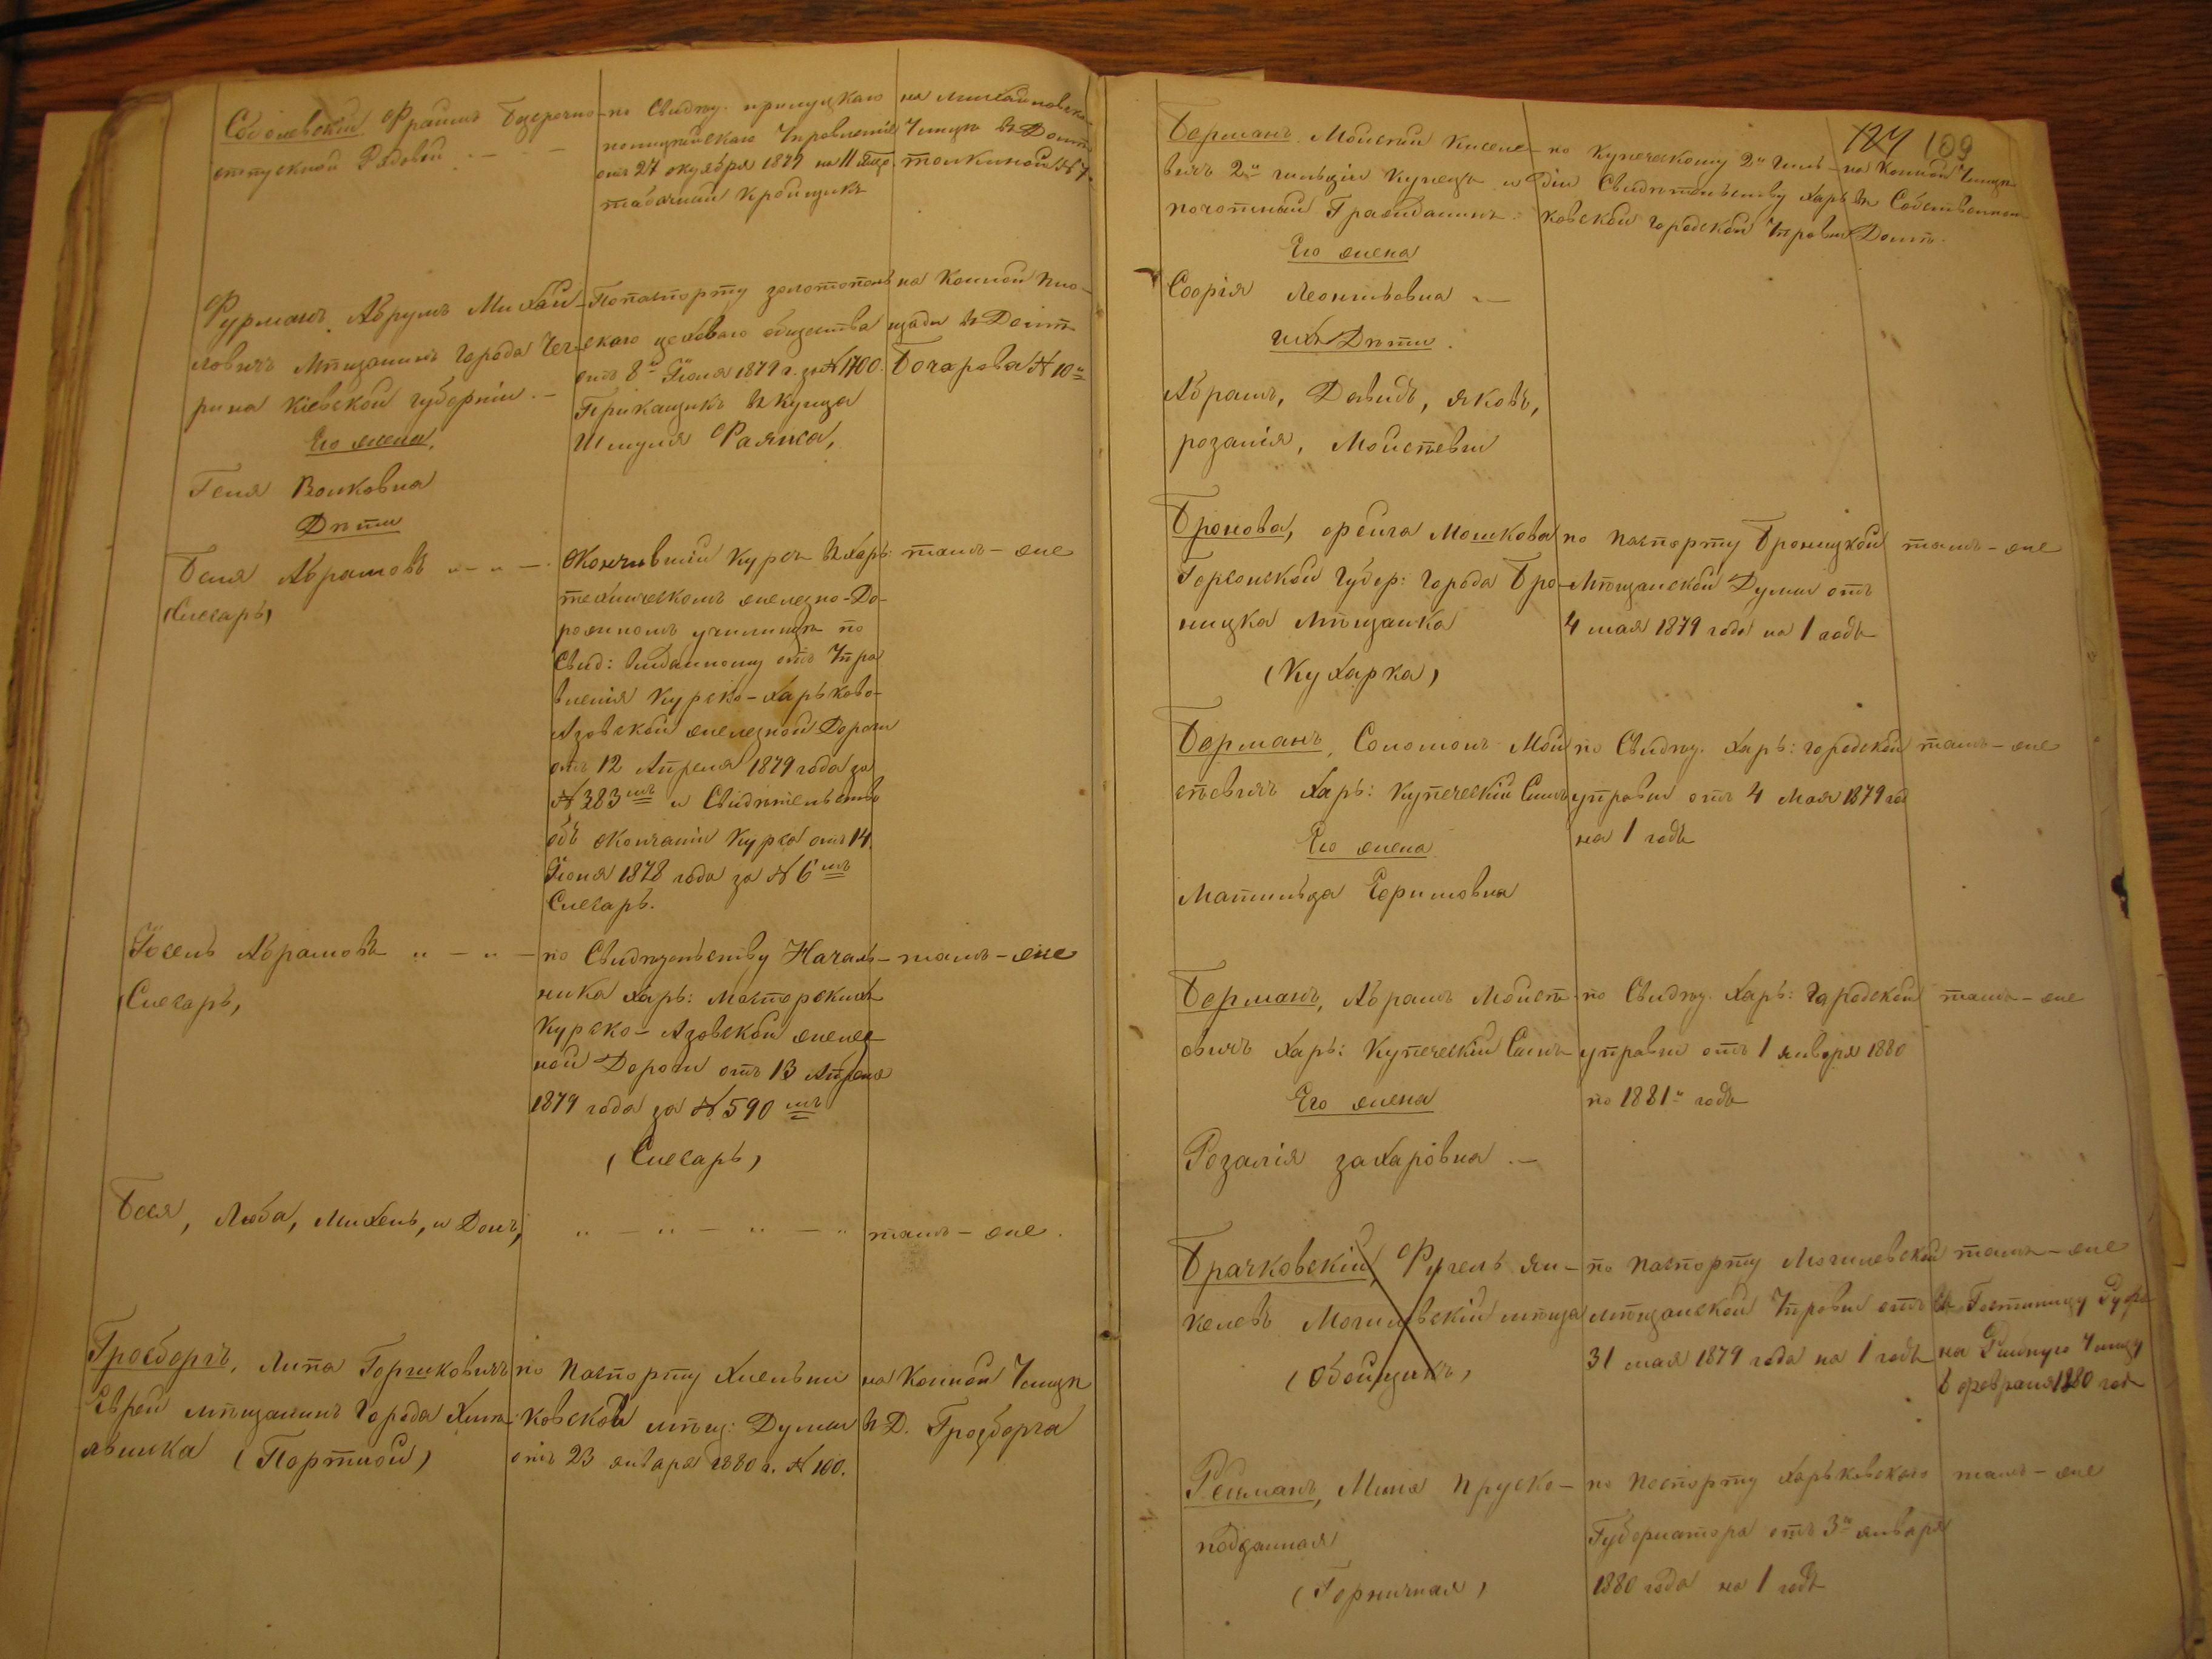 Соболевскій Фраимъ Безсрочно-
отпускной Рядовой
по Свидѣт. прилуцкаго
полицейскаго Управленія
отъ 27 октября 1879 на 11 мѣс.
табачный крошщикъ
на Михайловской
Улицѣ въ Домѣ
Толкиной № 7
Фурманъ, Абрумъ Михай-
ловичъ Мѣщанинъ города Чеги-
рина Кіевской губерніи. —
Его жена,
Геня Волковна
Дѣти
По паспорту золотополь-
скаго цеховаго общества
отъ 8го Іюня 1879 г. за № 1700.
Прикащикъ въ Купца
Шмуля Фаянса,
на Конной пло-
щади въ Домѣ
Бочарова № 10й
Беня Абрамовъ „ - „ -
(Слесарь)
Окончившій Курсъ въ Харь:
техническомъ железно-До-
рожномъ училищѣ по
Свид: выданному отъ Упра
вленія Курско-Харьково-
Азовской железной Дороги
отъ 12 Апреля 1879 года за
№ 383мъ и Свидѣтельство
объ окончаніи Курса отъ 14
Іюня 1878 года за № 6мъ
Слесарь.
тамъ - же
Іосель Абрамовъ „ - „ -
(Слесарь,
по Свидѣтельству Началь-
ника Харь: Мастерскихъ
Курско-Азовской желез-
ной Дороги отъ 13 Апреля
1879 года за № 590мъ
(Слесарь)
тамъ - же
Бася, Люба, Михель, и Донъ,
„ - „ - „ - „
тамъ - же.
Гросборгъ, Липа Горшковичъ
Еврей мѣщанинъ города Хмѣ-
льника (Портной)
по Паспорту Хмельни
ковской мѣщ: Думы
отъ 23 января 1880 г. № 100.
на Конной Улицѣ
въ Д. Гросборга
124 109
Берманъ Мойсей Киселе-
вичъ 2й гильдіи Купецъ и
почотный Гражданинъ.
Его жена
Софія Леонтьевна
ихъ Дѣти.
Абрамъ, Давидъ, Яковъ,
розалія, Мойсѣевы
по Купеческому 2й Гиль-
діи Свидѣтельству Харь-
ковской городской Управы
на Конной Улицѣ
въ Собственномъ
Домѣ.
Бронова, Фейга Мошкова
Херсонской Губер: города Бро-
ницка мѣщанка
(Кухарка)
по паспорту Броницкой
Мѣщанской Думы отъ
4 мая 1879 года на 1 годъ
тамъ - же
Берманъ, Соломонъ Мой
сѣевичъ Харь: Купеческій Сынъ
Его жена
Матильда Ефимовна
по Свидѣт. Харь: городской
управы отъ 4 Мая 1879 год
на 1 годъ
тамъ - же
Берманъ, Абрамъ Мойсѣ
овичъ Харь: Купеческій Сынъ
Его жена
Розалія захаровна. —
по Свидѣт. Харь: Городской
управы отъ 1 января 1880
по 1881й годъ
тамъ - же
Брачковскій, Фугель Ян-
келевъ Могилевскій мѣща
(Обойщикъ)
по паспорту Могилевской
мѣщанской Управы отъ
31 мая 1879 года на 1 годъ
тамъ - же
въ Гостиницу
на Рыбную Улицу
6 февраля 1880 год
Рейманъ, Миня Пруско-
подданная
(Горничная)
по паспорту Харьковскаго
Губернатора отъ 3й января
1880 года на 1 годъ
тамъ - же